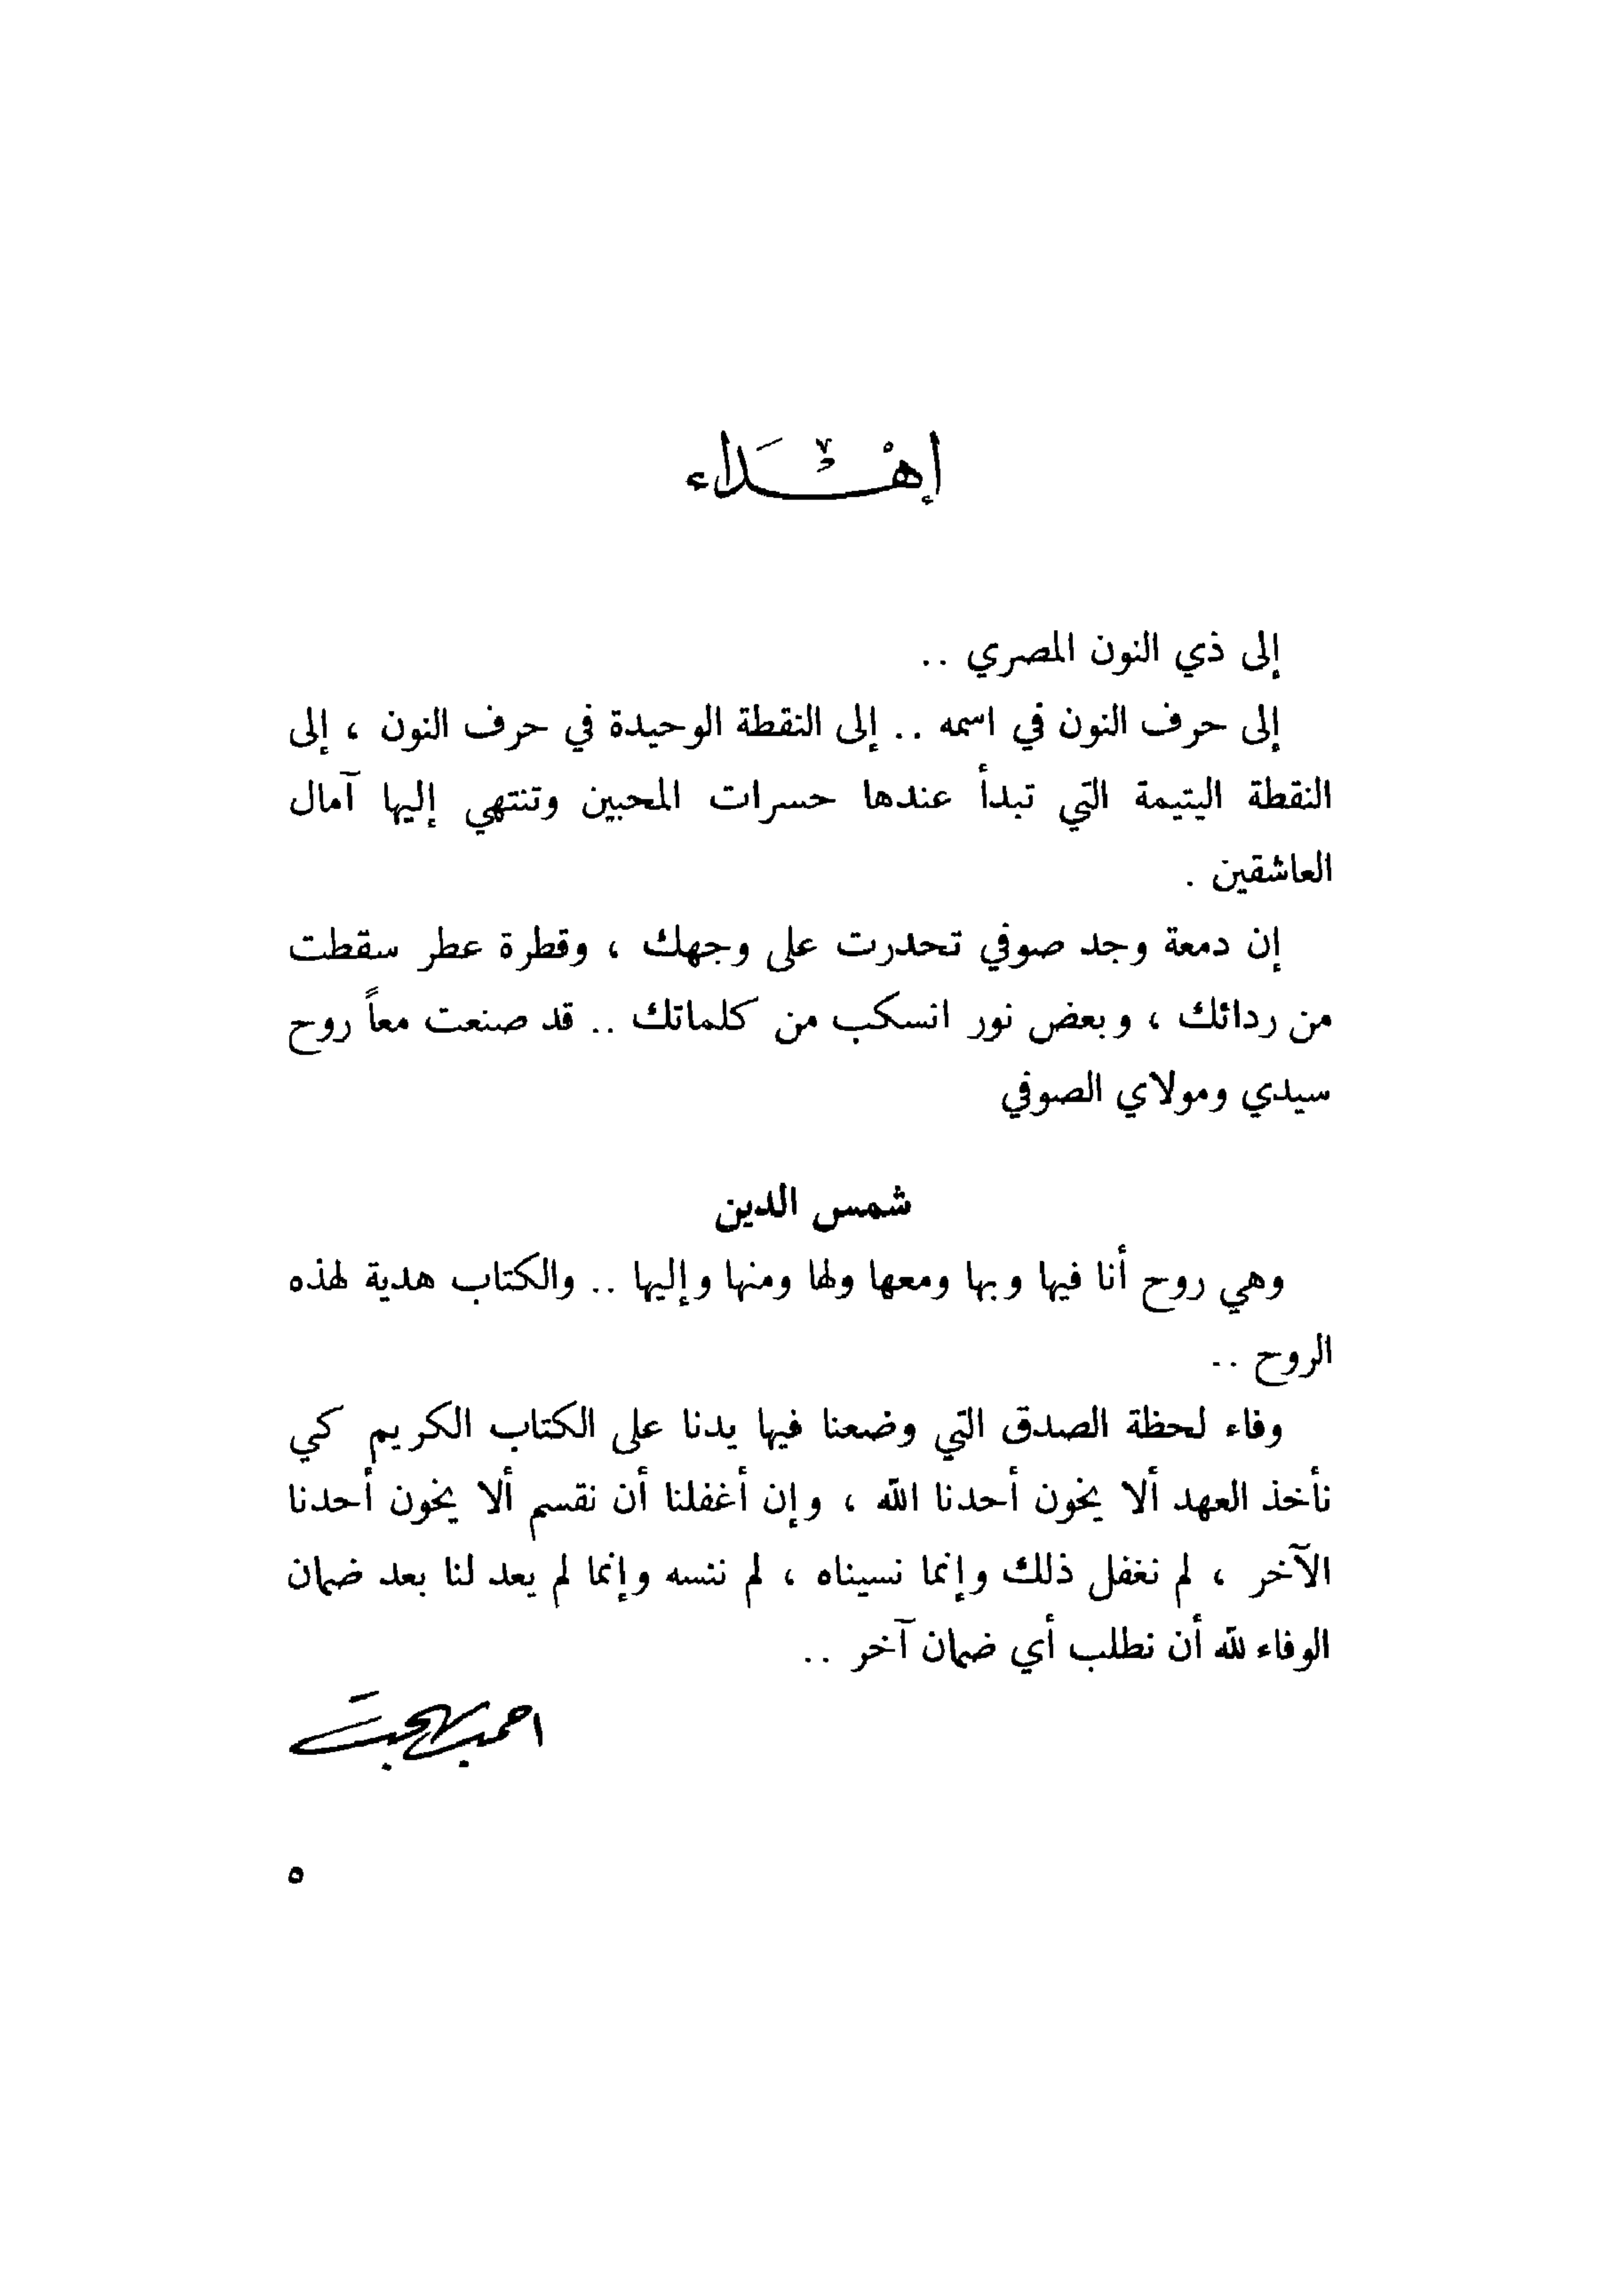 إهداء
إلى ذي النون المصري ..
إلى حرف النون في اسمه .. إلى النقطة الوحيدة في حرف النون ، إلى
النقطة اليتيمة التي تبدأ عندها حسرات المحبين وتنتهي إليها آمال
العاشقين .
إن دمعة وجد صوفي تحدرت على وجهك ، وقطرة عطر سقطت
من ردائك ، وبعض نور انسكب من كلماتك .. قد صنعت معاً روح
سيدي ومولاي الصوفي
شمس الدين
وهي روح أنا فيها وبها ومعها ولها ومنها وإليها .. والكتاب هدية لهذه
الروح ..
وفاء لحظة الصدق التي وضعنا فيها يدنا على الكتاب الكريم كي
نأخذ العهد ألا يخون أحدنا الله ، وإن أغفلنا أن نقسم ألا يخون أحدنا
الآخر ، لم نغفل ذلك وإنما نسيناه ، لم ننسه وإنما لم يعد لنا بعد ضمان
الوفاء لله أن نطلب أي ضمان آخر ..
احمد بهجت
٥